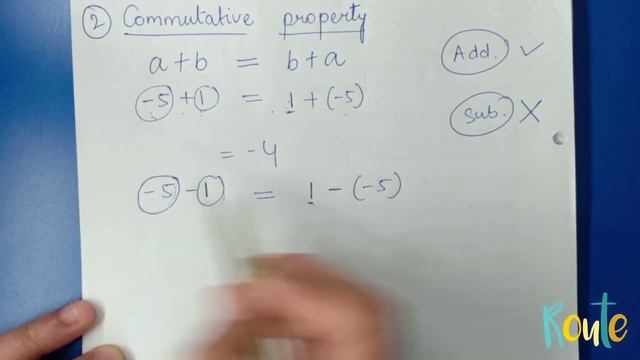 ② Commutative property
a+b = b+a
-5+1 = 1+(-5)
= -4
-5-1 = 1-(-5)
Add. ✓
Sub. X
Route